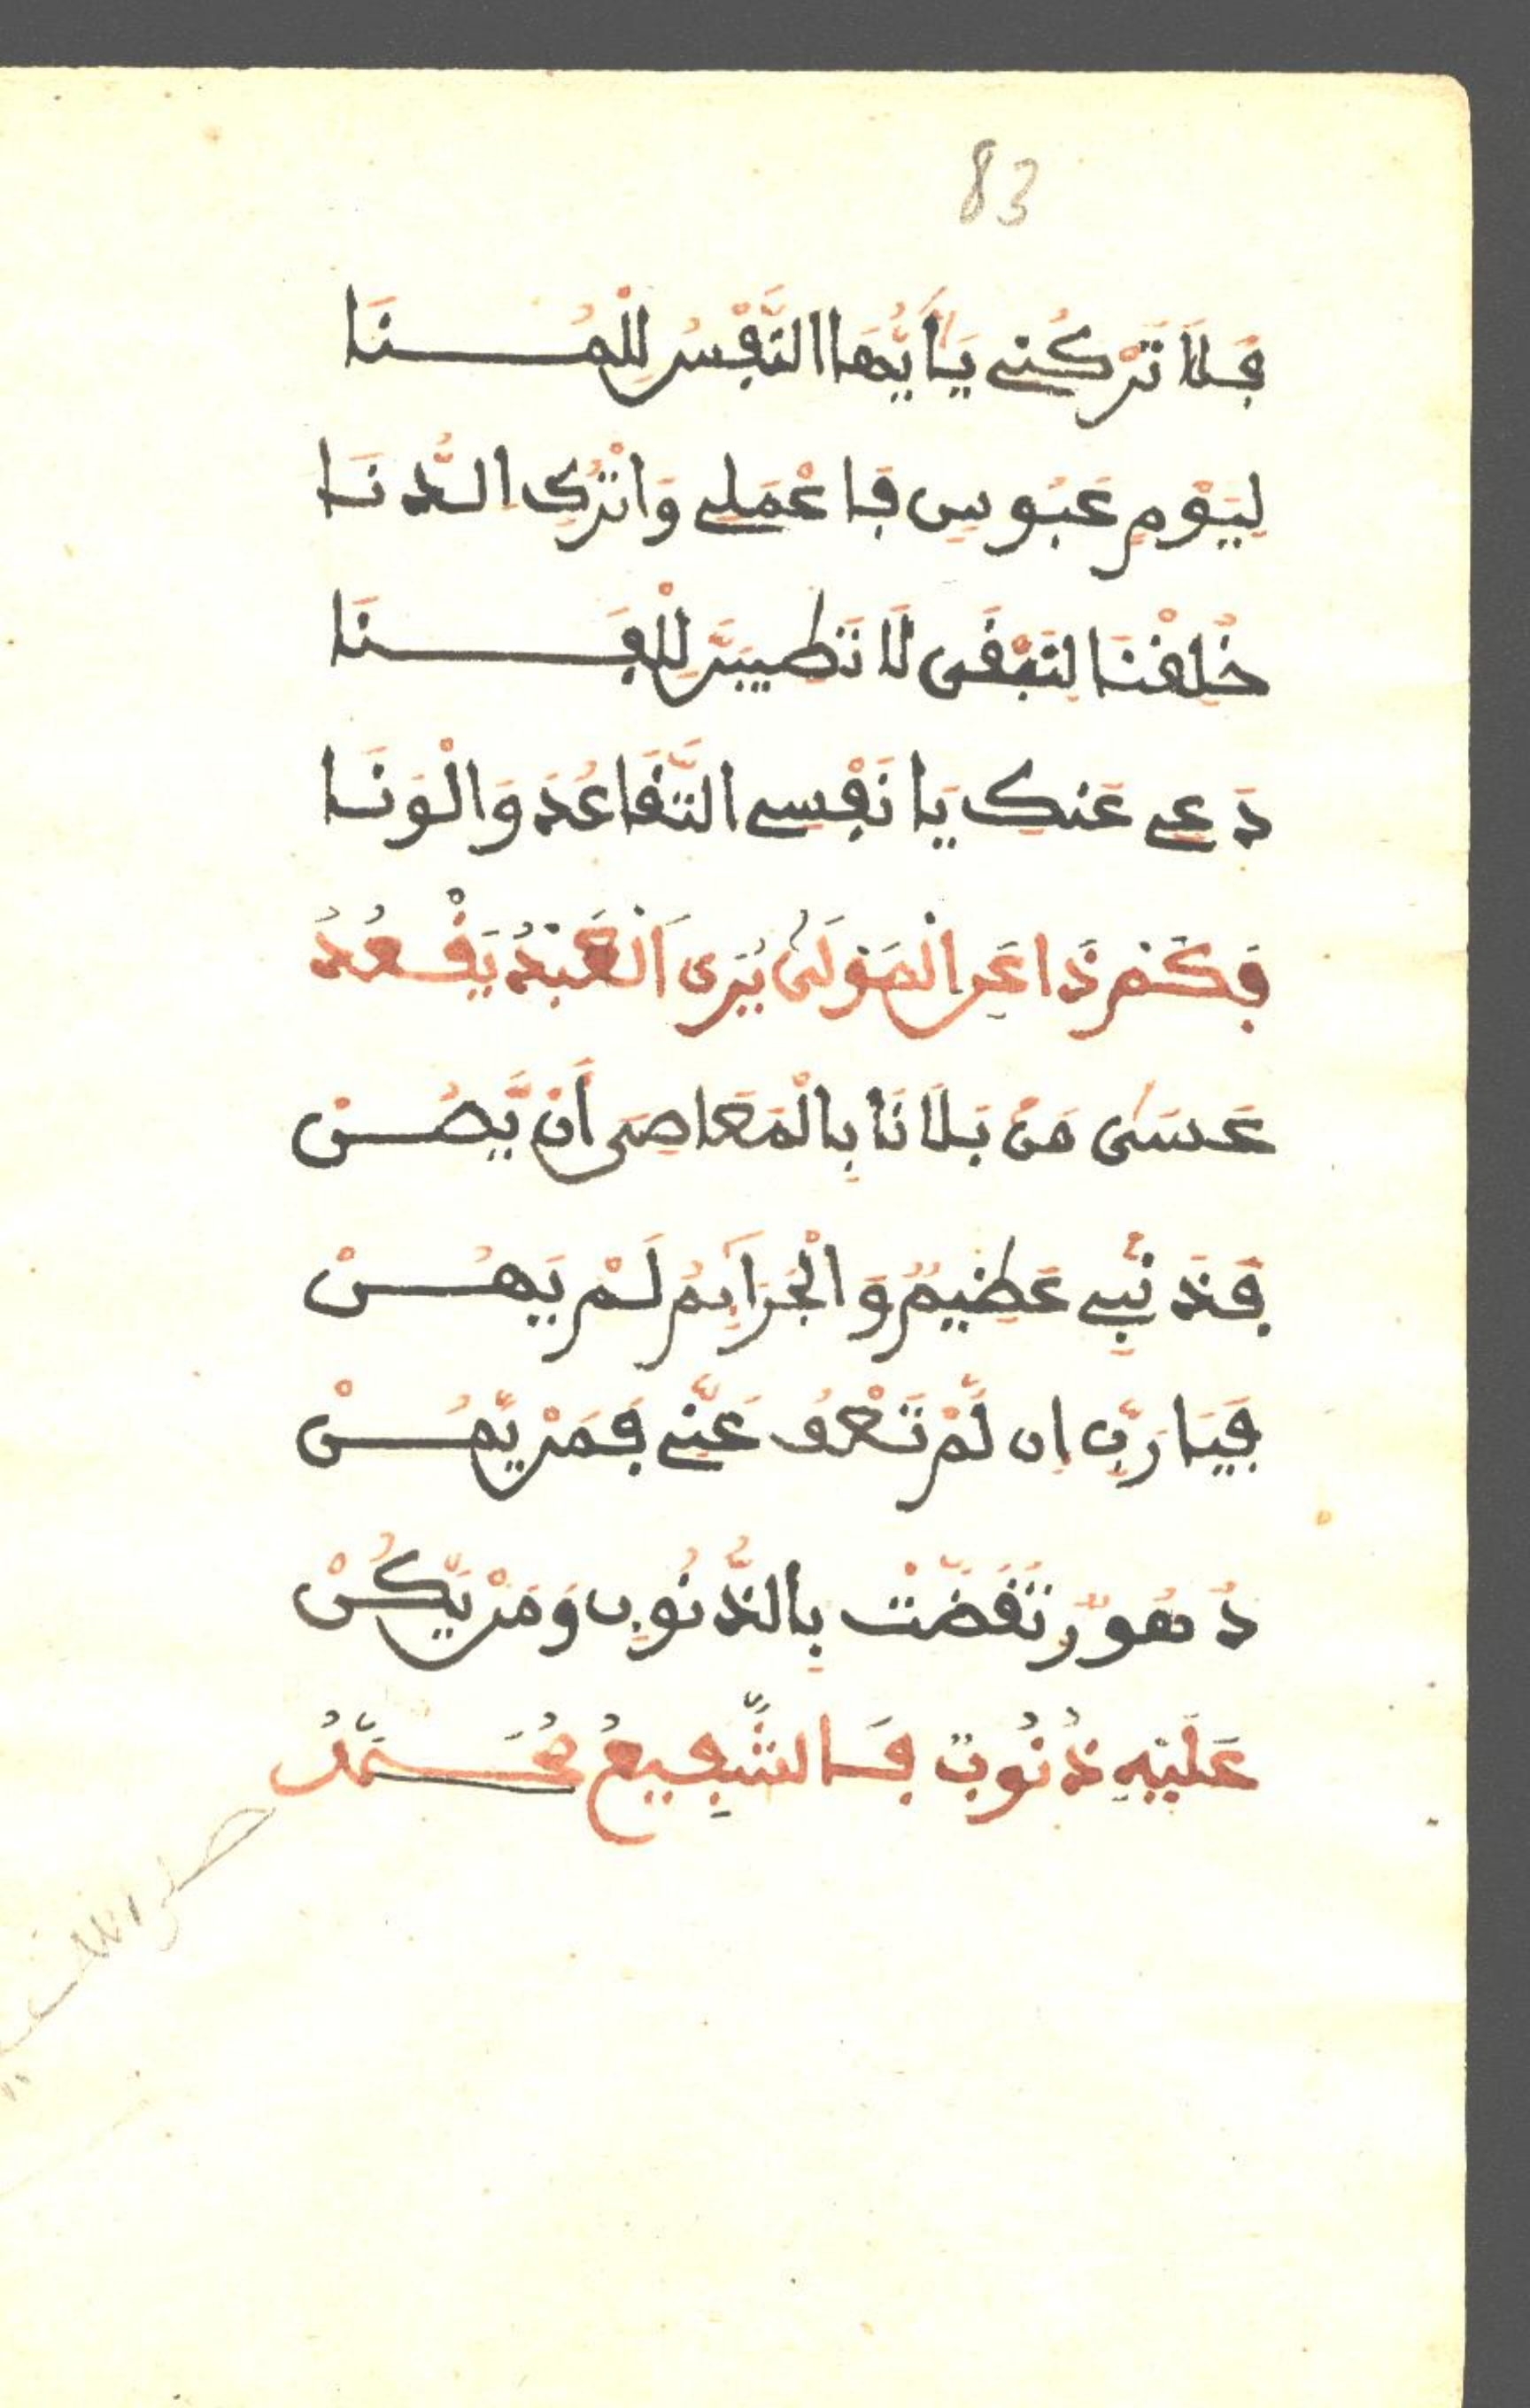 83
فَلَا تَرْكُنِي يَا أَيُّهَا النَّفْسُ لِلْمُنَا
لِيَوْمٍ عَبُوسٍ فَاعْمَلِي وَاتْرُكِ الدُّنَا
خُلِقْنَا لِنَبْقَى لَا نَطِيبَنَّ لِلْفَنَا
دَعِي عَنكِ يَا نَفْسِي التَّقَاعُدَ وَالْوَنَا
فَكَمْ ذَا عَنِ الْمَوْلَى يُرَى الْعَبْدُ يَقْعُدُ
عَسَى مَنْ بَلَانَا بِالْمَعَاصِي أَنْ يَّصُنْ
فَذَنْبِي عَظِيمٌ وَالْجَرَائِمُ لَمْ يَهُنْ
فَيَا رَبِّ إِن لَّمْ تَعْفُ عَنِّي فَمَنْ يَّهُنْ
دُهُورٌ تَقَضَّتْ بِالذُّنُوبِ وَمَنْ يَّكُنْ
عَلَيْهِ ذُنُوبٌ فَالشَّفِيعُ مُحَمَّدُ
صلى الله